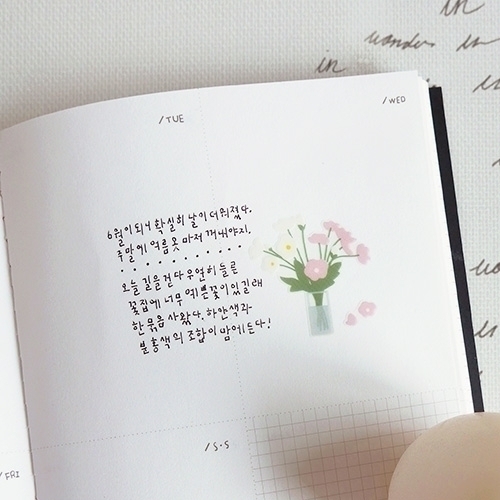 in
wonders in
in
/TUE
/WED
6월이 되니 확실히 날이 더워졌다.
주말에 여름옷 마저 꺼내야지.
오늘 길을 걷다 우연히 들른
꽃집에 너무 예쁜 꽃이 있길래
한 묶음 사왔다. 하얀색과
분홍색의 조합이 맘에 든다!
/S·S
/FRI